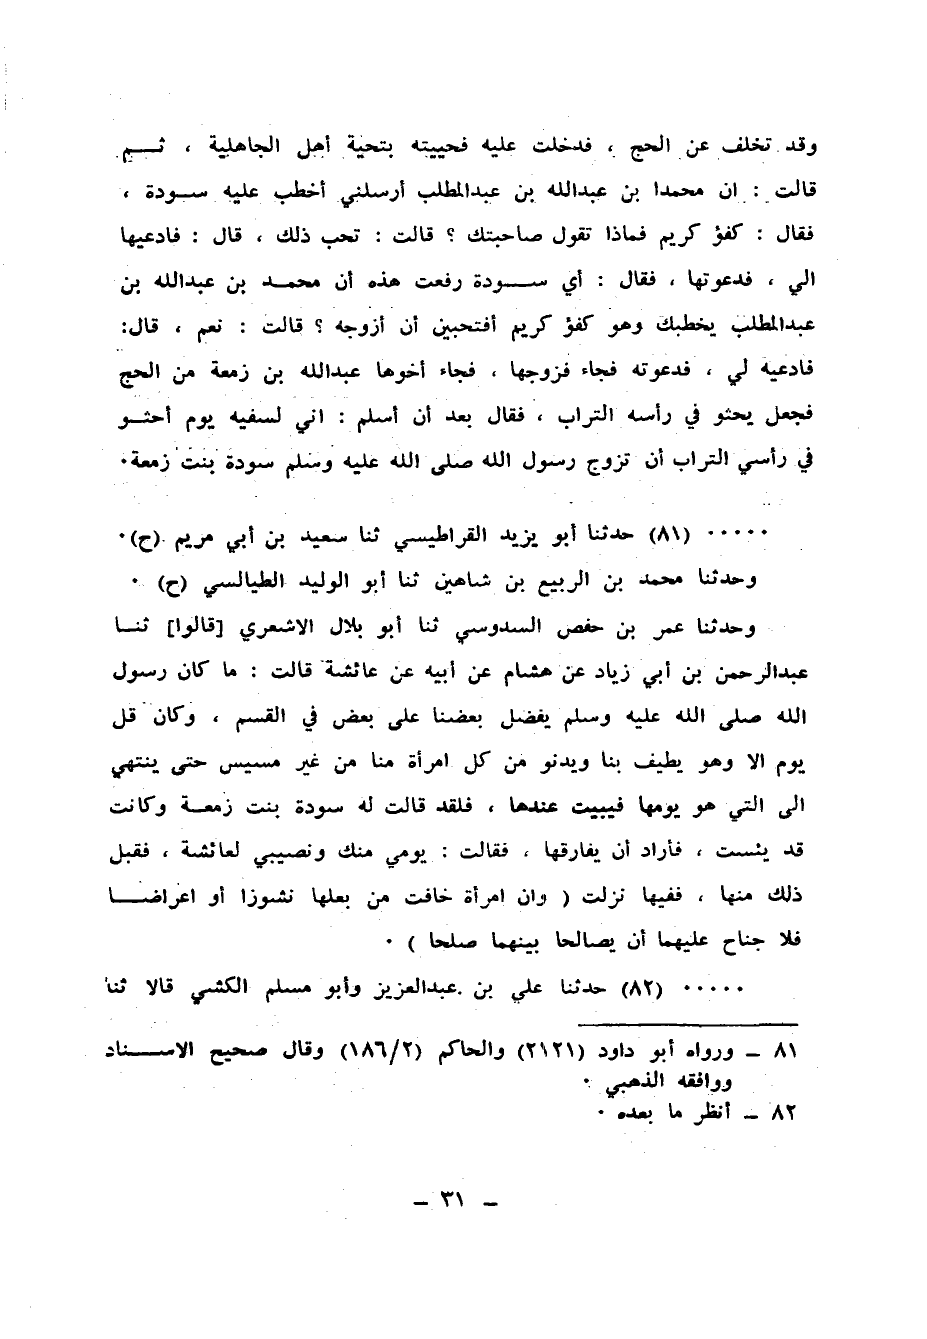 وقد تخلف عن الحج ، فدخلت عليه فحييته بتحية أهل الجاهلية ، ثـــم
قالت : ان محمدا بن عبدالله بن عبدالمطلب أرسلني أخطب عليه ســودة ،
فقال : كفؤ كريم فماذا تقول صاحبتك ؟ قالت : تحب ذلك ، قال : فادعيها
الي ، فدعوتها ، فقال : أي ســـودة رفعت هذه أن محمــد بن عبدالله بن
عبدالمطلب يخطبك وهو كفؤ كريم أفتحبين أن أزوجه ؟ قالت : نعم ، قال:
فادعيه لي ، فدعوته فجاء فزوجها ، فجاء أخوها عبدالله بن زمعة من الحج
فجعل يحثو في رأسه التراب ، فقال بعد أن أسلم : اني لسفيه يوم أحثــو
في رأسي التراب أن تزوج رسول الله صلى الله عليه وسلم سودة بنت زمعة.
..... (٨١) حدثنا أبو يزيد القراطيسي ثنا سعيد بن أبي مريم (ح).
وحدثنا محمد بن الربيع بن شاهين ثنا أبو الوليد الطيالسي (ح) .
وحدثنا عمر بن حفص السدوسي ثنا أبو بلال الاشعري [قالوا] ثنــا
عبدالرحمن بن أبي زياد عن هشام عن أبيه عن عائشة قالت : ما كان رسول
الله صلى الله عليه وسلم يفضل بعضنا على بعض في القسم ، وكان قل
يوم الا وهو يطيف بنا ويدنو من كل امرأة منا من غير مسيس حتى ينتهي
الى التي هو يومها فيبيت عندها ، فلقد قالت له سودة بنت زمعــة وكانت
قد يئست ، فأراد أن يفارقها ، فقالت : يومي منك ونصيبي لعائشة ، فقبل
ذلك منها ، ففيها نزلت ( وان امرأة خافت من بعلها نشوزا أو اعراضـــا
فلا جناح عليهما أن يصالحا بينهما صلحا ) .
..... (٨٢) حدثنا علي بن عبدالعزيز وأبو مسلم الكشي قالا ثنا
٨١ ــ ورواه أبو داود (٢١٢١) والحاكم (١٨٦/٢) وقال صحيح الاســـناد
ووافقه الذهبي .
٨٢ ــ أنظر ما بعده .
ــ ٣١ ــ